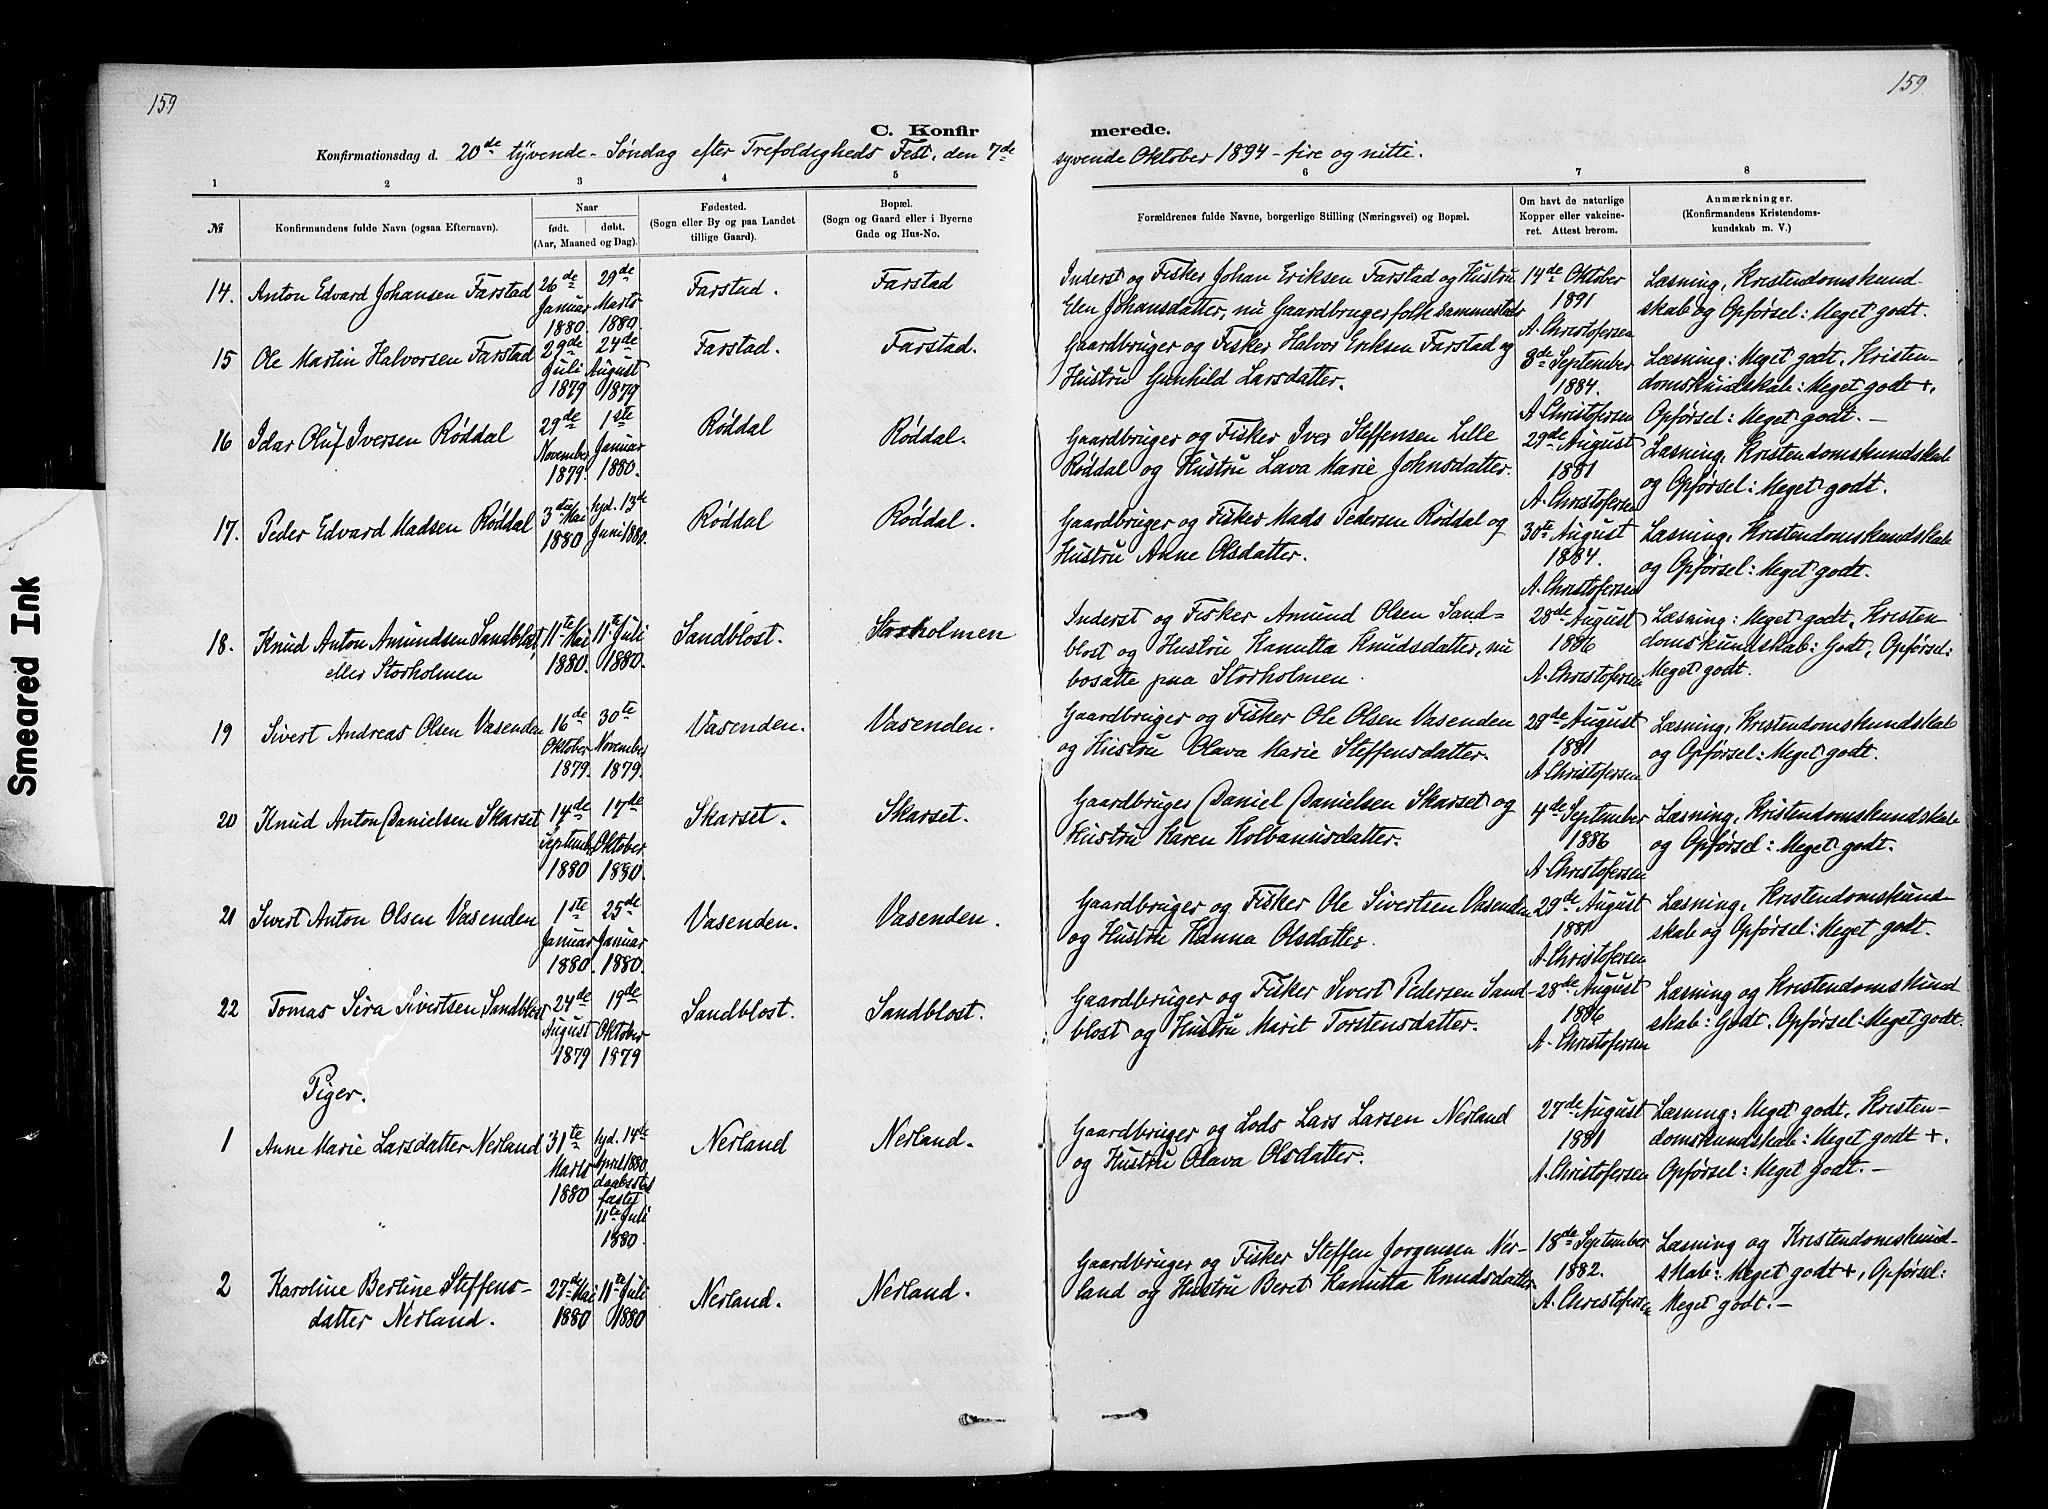 159
159.
C. Konfirmerede.
Konfirmationsdag d. 20de tyvende - Søndag efter Trefoldigheds Fest, den 7de syvende Oktober 1894 - fire og nitti.
1 2 3 4 5 6 7 8
№ | Konfirmandens fulde Navn (ogsaa Efternavn). | Naar født. døbt. (Aar, Maaned og Dag). | Fødested. (Sogn eller By og paa Landet tillige Gaard). | Bopæl. (Sogn og Gaard eller i Byerne Gade og Hus-No. | Forældrenes fulde Navne, borgerlige Stilling (Næringsvei) og Bopæl. | Om havt de naturlige Kopper eller vakcineret. Attest herom. | Anmærkninger. (Konfirmandens Kristendomskundskab m. V.)
14. Anton Edvard Johansen Farstad | 26de Januar 1880 | 29de Marts 1880. | Farstad. | Farstad | Inderst og Fisker Johan Eriksen Farstad og Hustru Elen Johansdatter, nu Gaardbrugerfolk sammesteds | 14de Oktober 1891 A. Christofersen | Læsning, Kristendomskundskab og Opførsel: Meget godt.
15 Ole Martin Halvorsen Farstad | 29de Juli 1879 | 24de August 1879 | Farstad. | Farstad. | Gaardbruger og Fisker Halvor Eriksen Farstad og Hustru Gunhild Larsdatter. | 3de September 1884. A. Christofersen | Læsning: Meget godt, Kristendomskundskab: Meget godt +, Opførsel: Meget godt. -
16 Idar Oluf Iversen Røddal | 29de November 1879. | 1ste Januar 1880. | Røddal | Røddal. | Gaardbruger og Fisker Iver Steffensen Lille Røddal og Hustru Lava Marie Johnsdatter. | 29de August 1881 A. Christofersen | Læsning, Kristendomskundskab og Opførsel: Meget godt.
17. Peder Edvard Madsen Røddal | 3die Mai 1880 | hjd. 13de Juni 1880. | Røddal | Røddal. | Gaardbruger og Fisker Mads Pedersen Røddal og Hustru Anne Olsdatter. | 30te August 1884. A. Christofersen | Læsning, Kristendomskundskab og Opførsel: Meget godt.
18. Knud Anton Amundsen Sandblost, eller Storholmen | 11te Mai 1880. | 11te Juli 1880. | Sandblost. | Storholmen | Inderst og Fisker Amund Olsen Sandblost og Hustru Kanutta Knudsdatter, nu bosatte paa Storholmen. | 28de August 1886 A. Christofersen | Læsning: Meget godt, Kristendomskundskab: Godt, Opførsel: Meget godt.
19 Sivert Andreas Olsen Vasenden | 16de Oktober 1879. | 30te November 1879. | Vasenden. | Vasenden. | Gaardbruger og Fisker Ole Olsen Vasenden og Hustru Olava Marie Steffensdatter. | 29de August 1881 A. Christofersen | Læsning, Kristendomskundskab og Opførsel: Meget godt.
20 Knud Anton Danielsen Skarset | 14de September 1880 | 17de Oktober 1880. | Skarset. | Skarset. | Gaardbruger Daniel Danielsen Skarset og Hustru Karen Kolbanusdatter. | 4de September 1886 A. Christofersen | Læsning, Kristendomskundskab og Opførsel: Meget godt.
21 Sivert Anton Olsen Vasenden | 1ste Januar 1880. | 25de Januar 1880. | Vasenden. | Vasenden. | Gaardbruger og Fisker Ole Sivertsen Vasenden og Hustru Hanna Olsdatter. | 29de August 1881 A. Christofersen | Læsning, Kristendomskundskab og Opførsel: Meget godt.
22 Tomas Sira Sivertsen Sandblost | 24de August 1879 | 19de Oktober 1879 | Sandblost. | Sandblost. | Gaardbruger og Fisker Sivert Pedersen Sandblost og Hustru Marit Torstensdatter. | 28de August 1886 A. Christofersen | Læsning og Kristendomskundskab: Godt, Opførsel: Meget godt.
Piger.
1 Anne Marie Larsdatter Nerland | 31te Marts 1880 | hjd. 14de April 1880. daabsstadfæstet 11te Juli 1880. | Nerland | Nerland. | Gaardbruger og Lods Lars Larsen Nerland og Hustru Olava Olsdatter. | 27de August 1881 A. Christofersen | Læsning: Meget godt, Kristendomskundskab: Meget godt +. Opførsel: Meget godt. -
2 Karoline Bertine Steffensdatter Nerland. | 27de Mai 1880 | 11te Juli 1880 | Nerland. | Nerland. | Gaardbruger og Fisker Steffen Jorgensen Nerland og Hustru Beret Kanutta Knudsdatter. | 18de September 1882. A. Christofersen | Læsning og Kristendomskundskab: Meget godt +, Opførsel: Meget godt. -
Smeared Ink